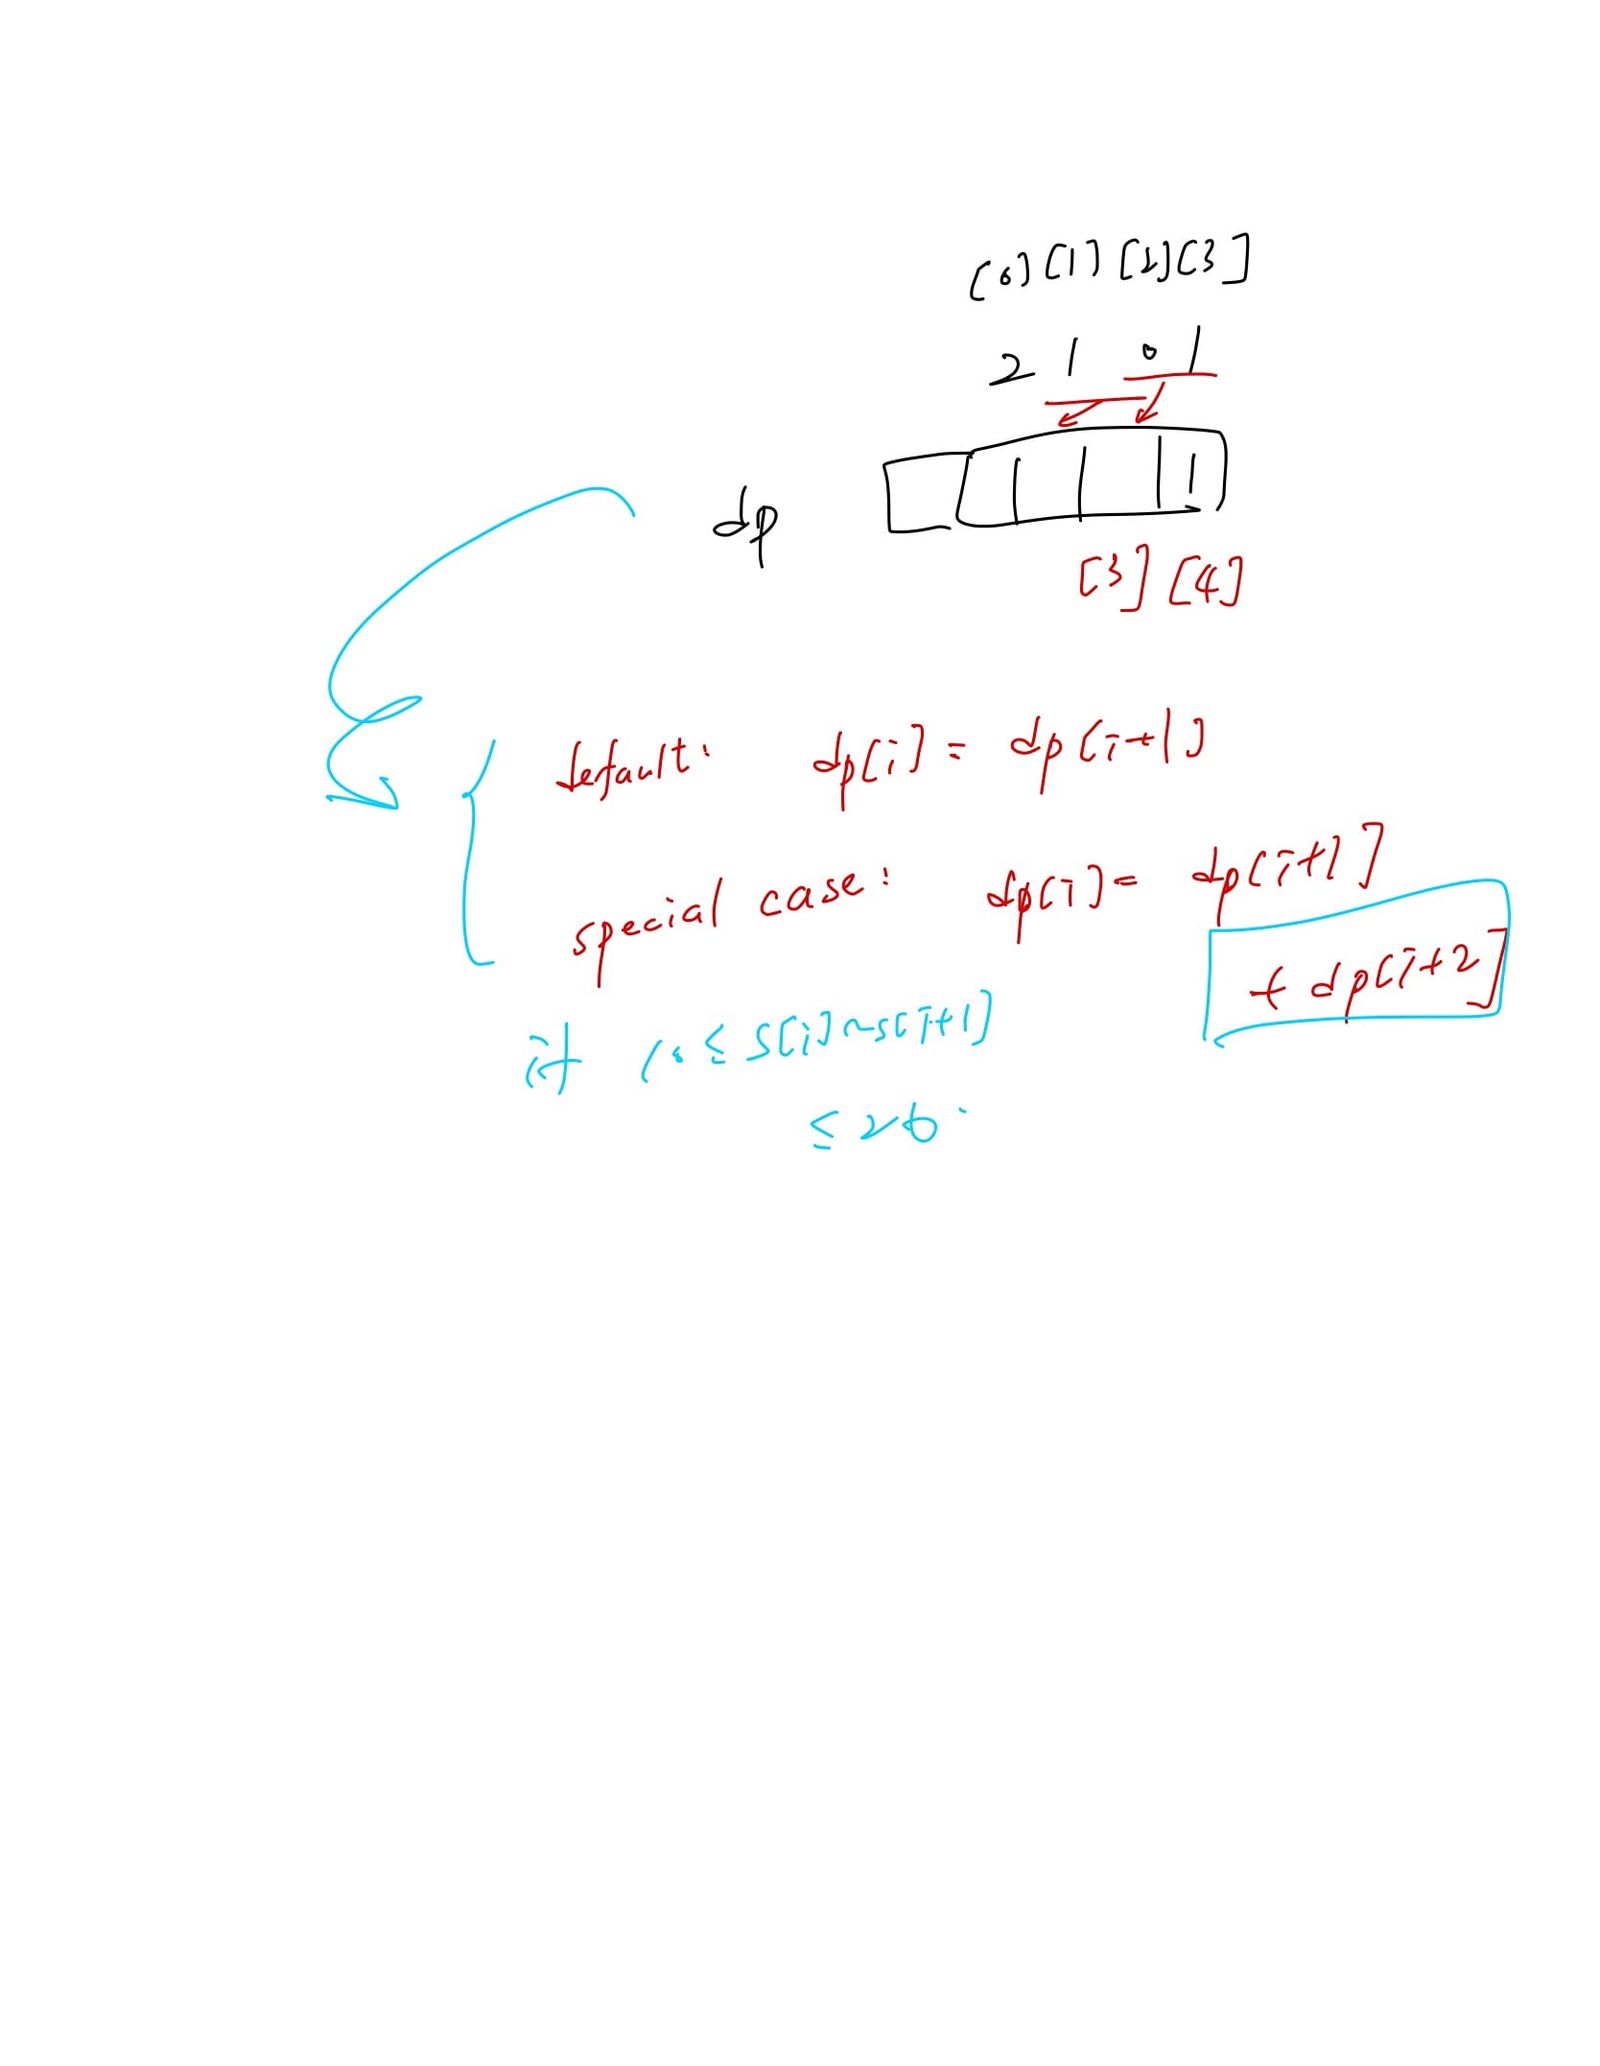 [0] [1] [2] [3]
2 1 0 1
dp
1
[3] [4]
default: dp[i] = dp[i+1]
special case: dp[i] = dp[i+1]
+ dp[i+2]
if 10 ≤ s[i]~s[i+1]
≤ 26.